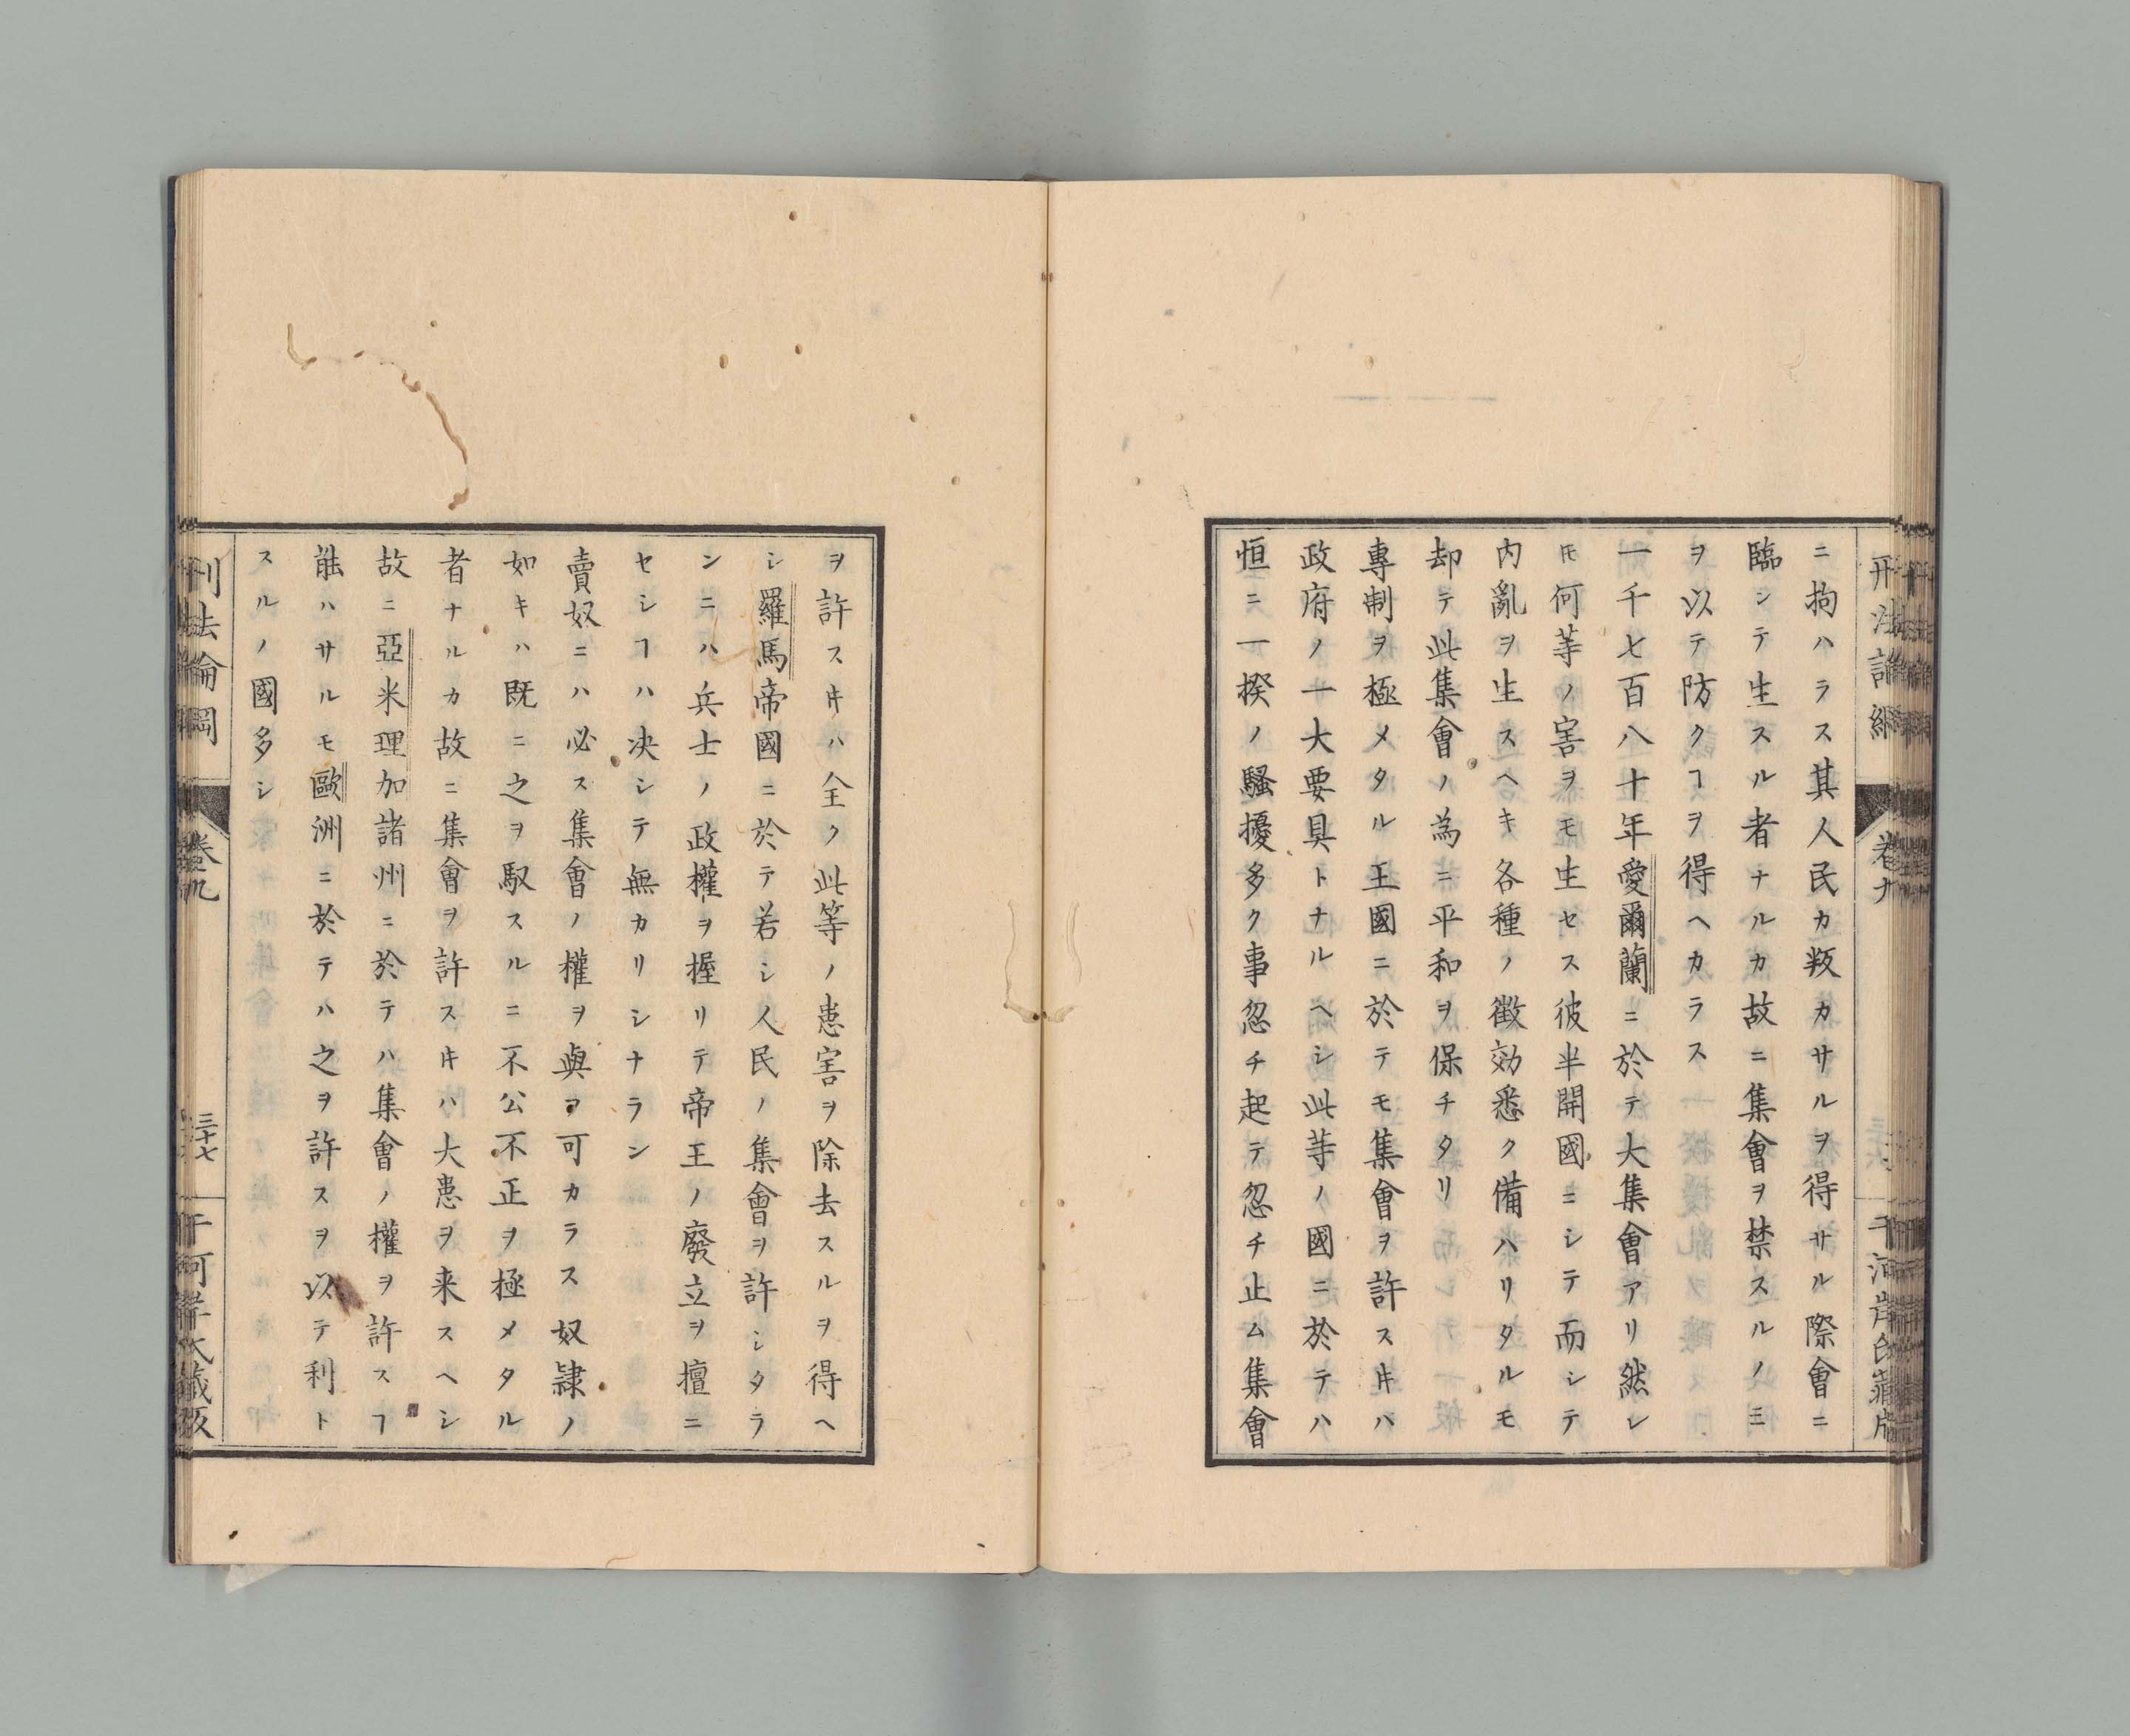 刑法論綱 卷九 千河岸氏藏版
ニ拘ハラス其人民カ叛カサルヲ得サル際會ニ
臨シテ生スル者ナルカ故ニ集會ヲ禁スルノミ
ヲ以テ防クヿヲ得ヘカラス
一千七百八十年愛爾蘭ニ於テ大集會アリ然レ
𪜈何等ノ害ヲモ生セス彼半開國ニシテ而シテ
内亂ヲ生スヘキ各種ノ徴効悉ク備ハリタルモ
却テ此集會ノ為ニ平和ヲ保チタリ
專制ヲ極メタル王國ニ於テモ集會ヲ許スキハ
政府ノ一大要具トナルヘシ此等ノ國ニ於テハ
恒ニ一揆ノ騷擾多ク事忽チ起テ忽チ止ム集會
ヲ許スキハ全ク此等ノ患害ヲ除去スルヲ得ヘ
シ羅馬帝國ニ於テ若シ人民ノ集會ヲ許シタラ
ンニハ兵士ノ政權ヲ握リテ帝王ノ廢立ヲ擅ニ
セシヿハ决シテ無カリシナラン
賣奴ニハ必ス集會ノ權ヲ與フ可カラス奴隷ノ
如キハ既ニ之ヲ馭スルニ不公不正ヲ極メタル
者ナルカ故ニ集會ヲ許スキハ大患ヲ来スヘシ
故ニ亞米理加諸州ニ於テハ集會ノ權ヲ許スヿ
能ハサルモ歐洲ニ於テハ之ヲ許スヲ以テ利ト
スルノ國多シ
刑法論綱 卷九 三十七 千河岸氏藏版